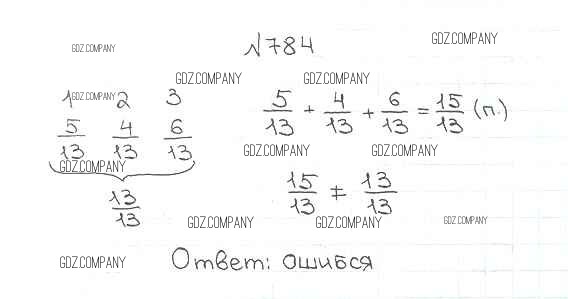 GDZ.COMPANY №784 GDZ.COMPANY
GDZ.COMPANY GDZ.COMPANY
1 GDZ.COMPANY 2 3
5/13 4/13 6/13 5/13 + 4/13 + 6/13 = 15/13 (п.)
GDZ.COMPANY GDZ.COMPANY GDZ.COMPANY
13/13 15/13 ≠ 13/13
GDZ.COMPANY GDZ.COMPANY GDZ.COMPANY
GDZ.COMPANY Ответ: ошибся